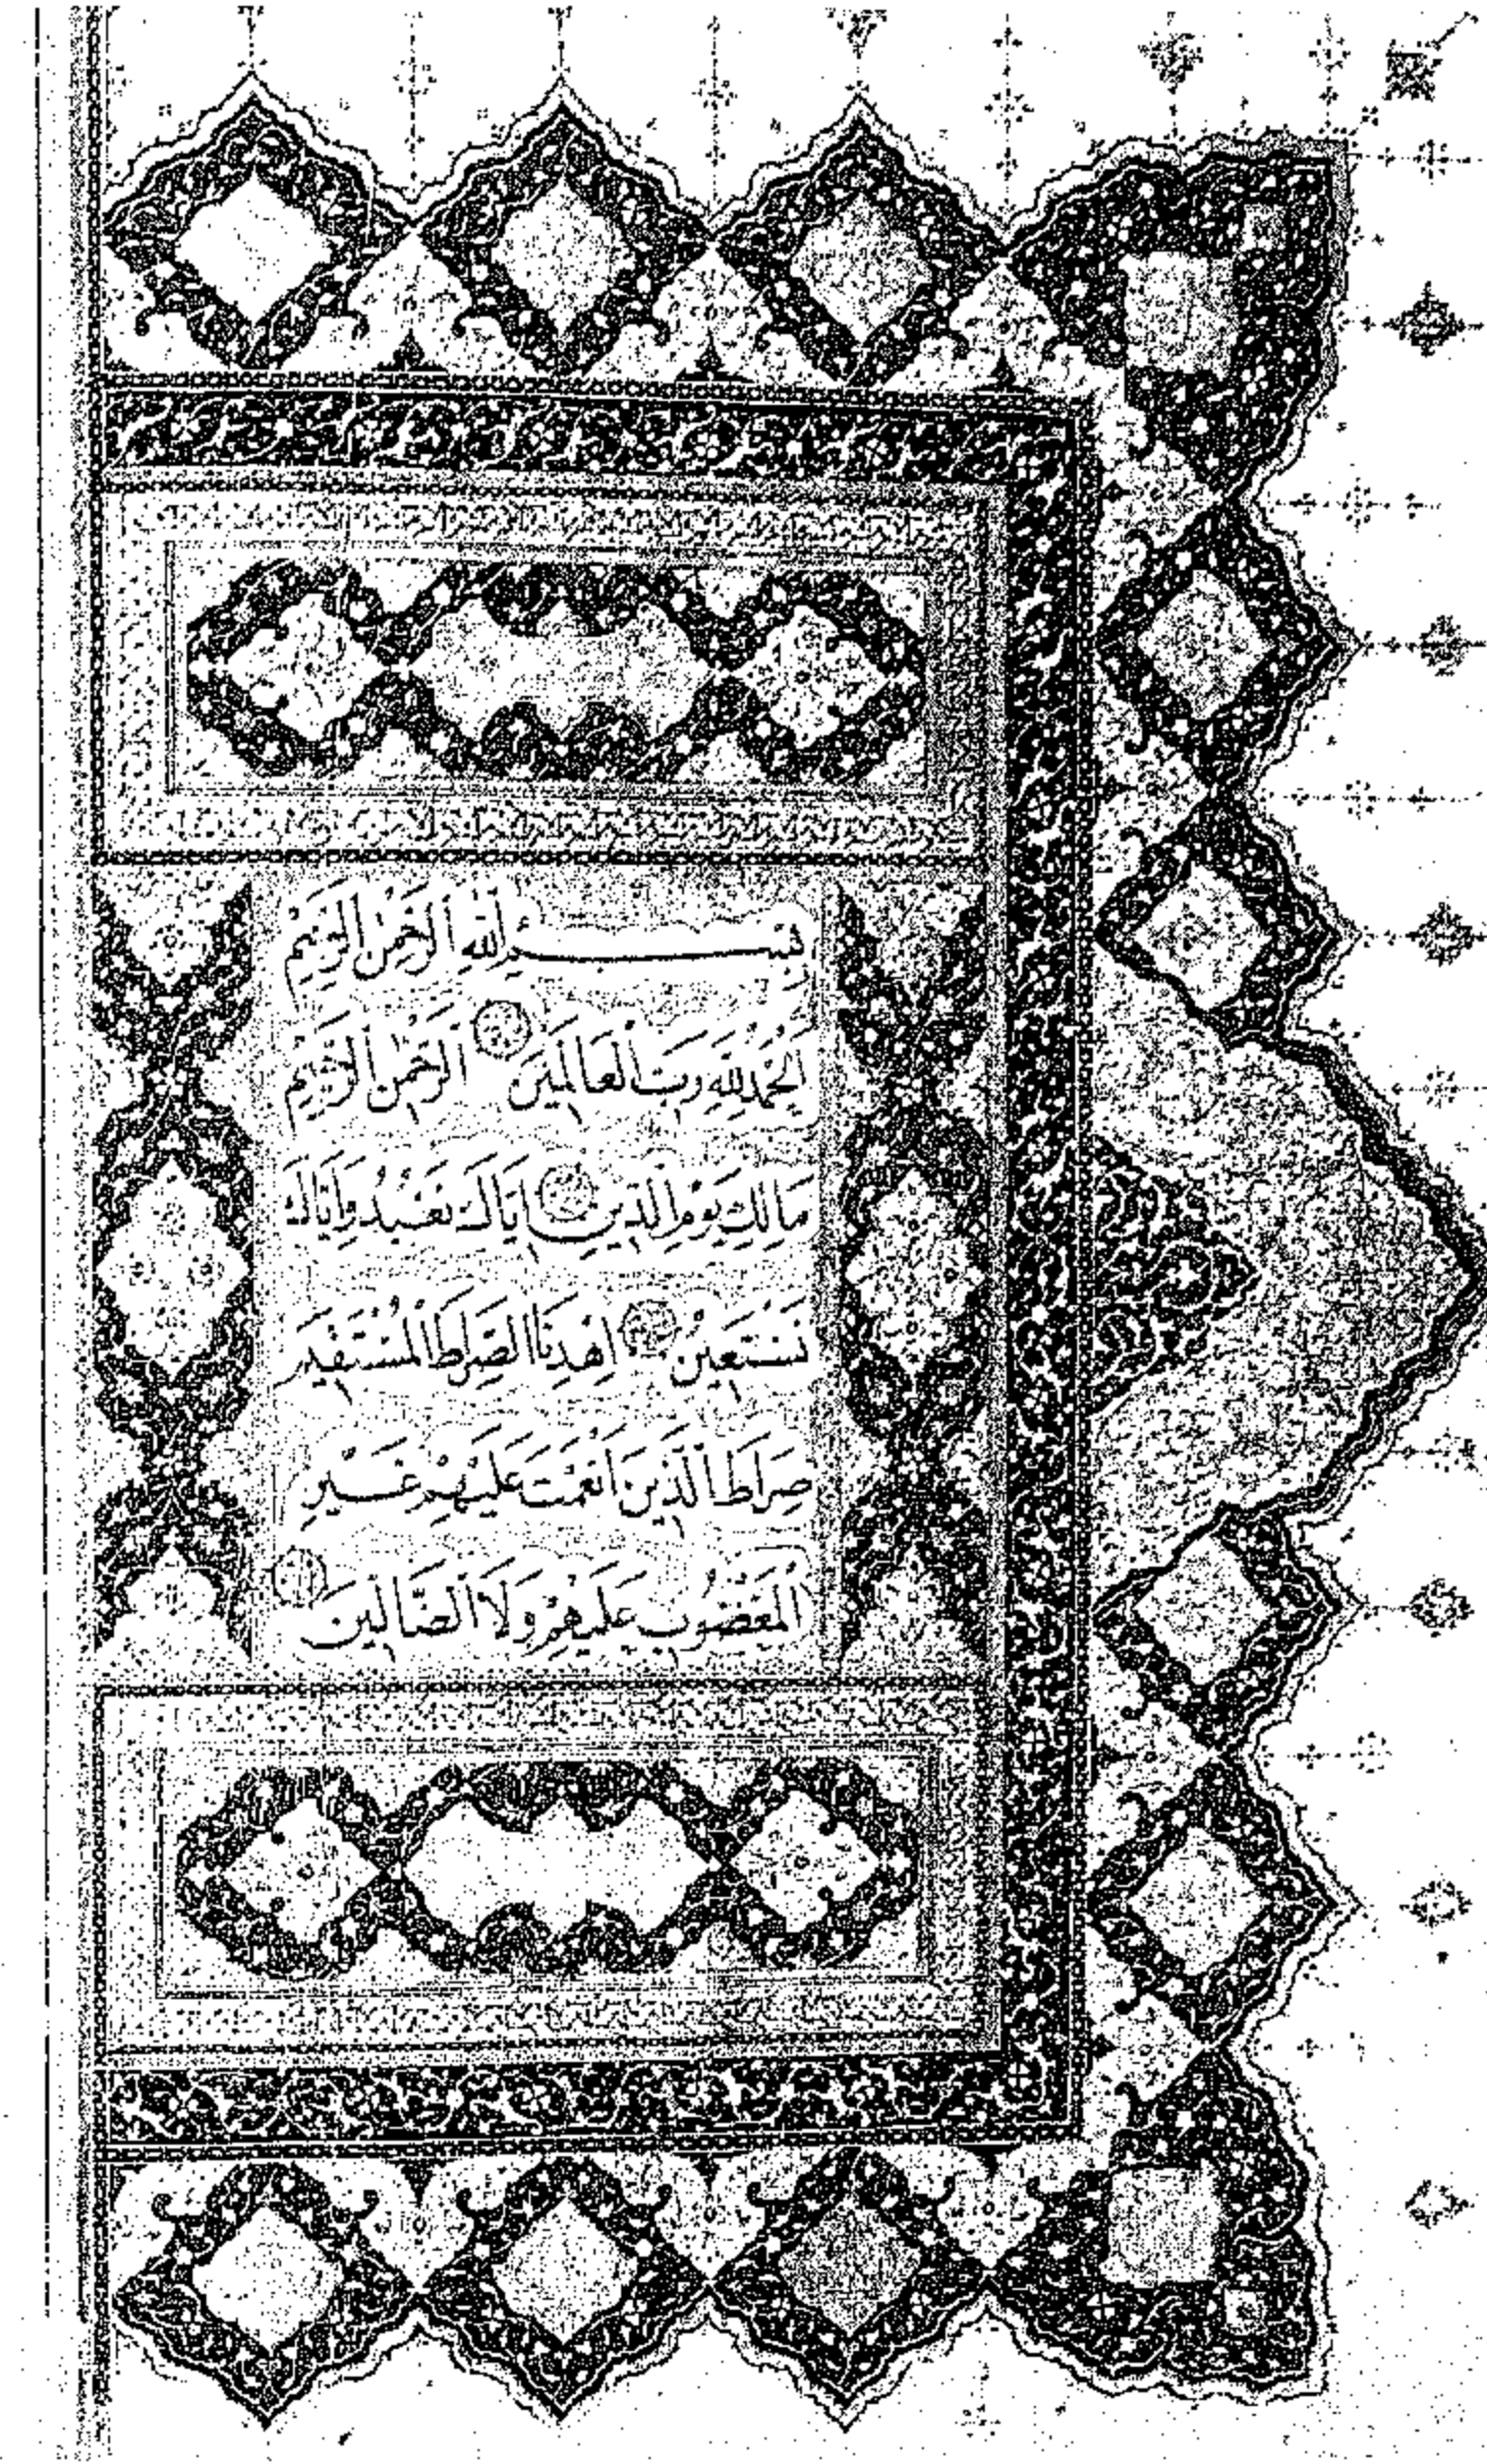 بِسْمِ اللّٰهِ الرَّحْمٰنِ الرَّحِيْمِ
اَلْحَمْدُ لِلّٰهِ رَبِّ الْعَالَمِيْنَ اَلرَّحْمٰنِ الرَّحِيْمِ
مَالِكِ يَوْمِ الدِّيْنِ اِيَّاكَ نَعْبُدُ وَاِيَّاكَ
نَسْتَعِيْنُ اِهْدِنَا الصِّرَاطَ الْمُسْتَقِيْمَ
صِرَاطَ الَّذِيْنَ اَنْعَمْتَ عَلَيْهِمْ غَيْرِ
الْمَغْضُوْبِ عَلَيْهِمْ وَلَا الضَّالِّيْنَ